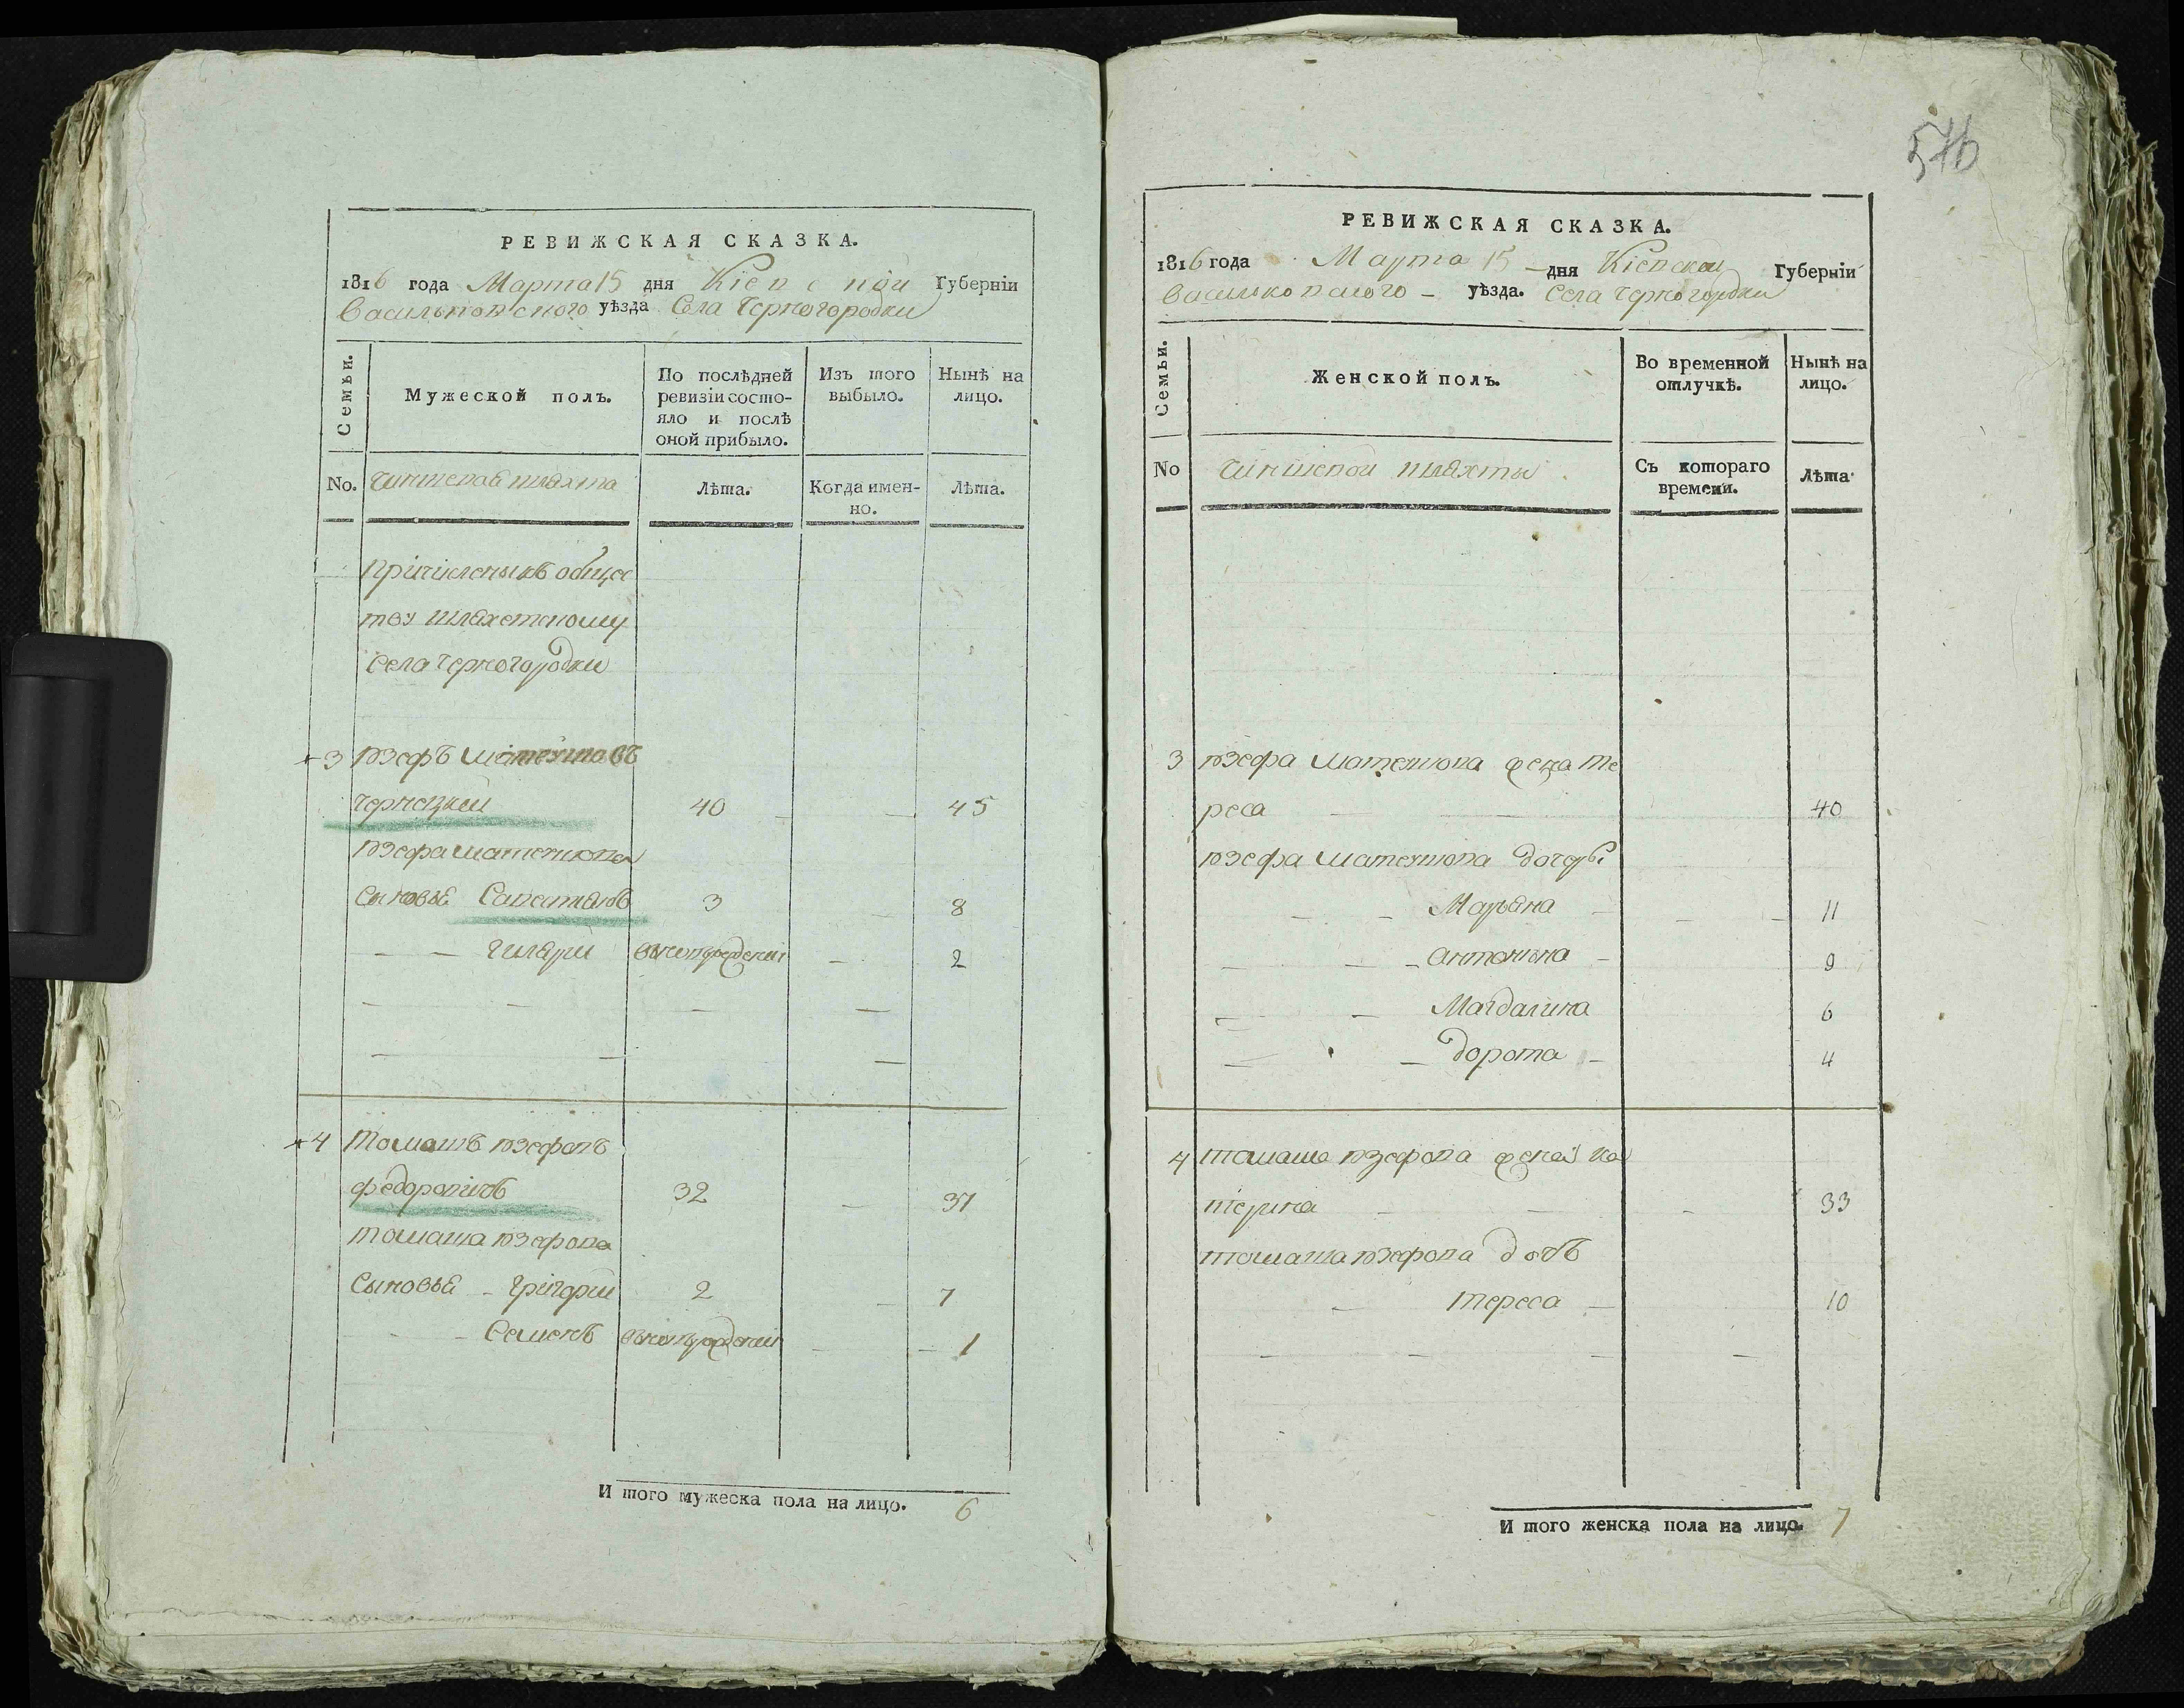 РЕВИЖСКАЯ СКАЗКА.
1816 года Марта 15 дня Кіевской Губерніи
Васильковского уѣзда Села Черногородки
Семьи.
Мужеской полъ.
По послѣдней ревизіи состояло и послѣ оной прибыло.
Изъ того выбыло.
Нынѣ на лицо.
No. Чиншевая шляхта
Лѣта.
Когда именно.
Лѣта.
Причислены къ общес
тву шляхетскому
села Черногородки
3 Юзефъ Матеушовъ
Чернецкий 40 45
Юзефа Матеушова
Сыновья 3 8
Гиляри 2
4 Томашъ Юзефовъ
Федоровичъ 32 37
Томаша Юзефова
Сыновья Григорий 2 7
Семенъ 1
И того мужеска пола на лицо. 6
576
РЕВИЖСКАЯ СКАЗКА.
1816 года Марта 15 дня Кіевской Губерніи
Васильковского уѣзда. Села Черногородки
Семьи.
Женской полъ.
Во временной отлучкѣ.
Нынѣ на лицо.
No Чиншевой шляхты
Съ котораго времени.
Лѣта
3 Юзефа Матеушова жена Те
реса 40
Юзефа Матеушова дочери
Марьяна 11
Антонина 9
Магдалина 6
Дорота 4
4 Томаша Юзефова жена Ка
терина 33
Томаша Юзефова дочь
Тереса 10
И того женска пола на лицо. 7